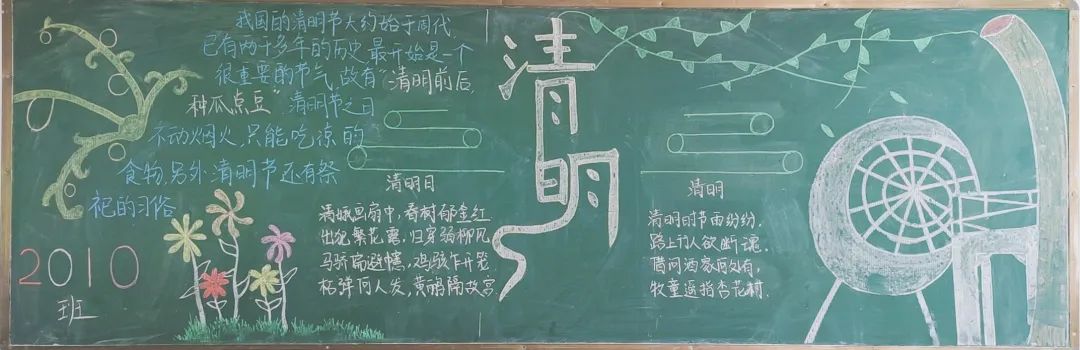 我国的清明节大约始于周代
已有两千多年的历史,最开始是一个
很重要的节气,故有“清明前后,
种瓜点豆”.清明节之日
不动烟火,只能吃凉的
食物,另外清明节还有祭
祀的习俗
2010
班
清明
清明日
清娥画扇中,春树郁金红.
出犯繁花露,归穿弱柳风.
马骄偏避幰,鸡骇乍开笼.
柘弹何人发,黄鹂隔故宫
清明
清明时节雨纷纷.
路上行人欲断魂.
借问酒家何处有,
牧童遥指杏花村.